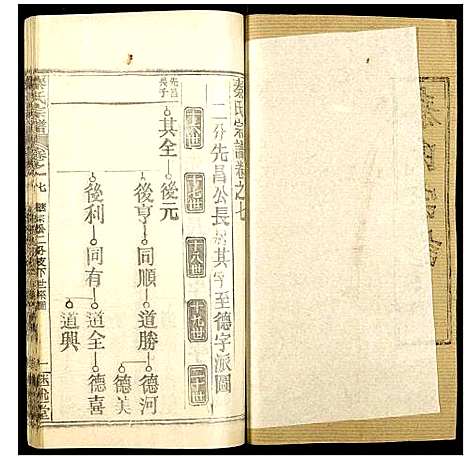 秦氏宗譜卷之七
二分先昌公長房其字至德字派圖
十六世
十七世
十八世
十九世
二十世
先昌
長子
其全
後元
後亨
同順
道勝
德河
德美
後利
同有
道全
德喜
道興
秦氏宗譜
卷之七